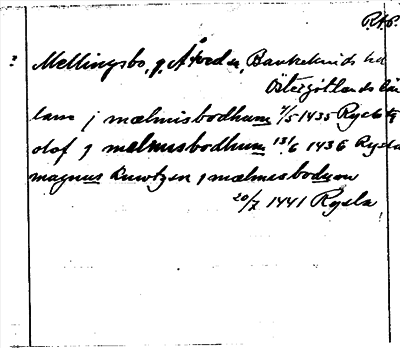 R.A.P.
? Mellingsbo, g. Åtved s, Bankekinds hd
Östergötlands län
lasse j mælmisbodhum 7/5 1435 Rysla
olof j mælmisbodhum 13/6 1436 Rysla
magnus knwtzen j mælmisbodum
20/7 1441 Rysla